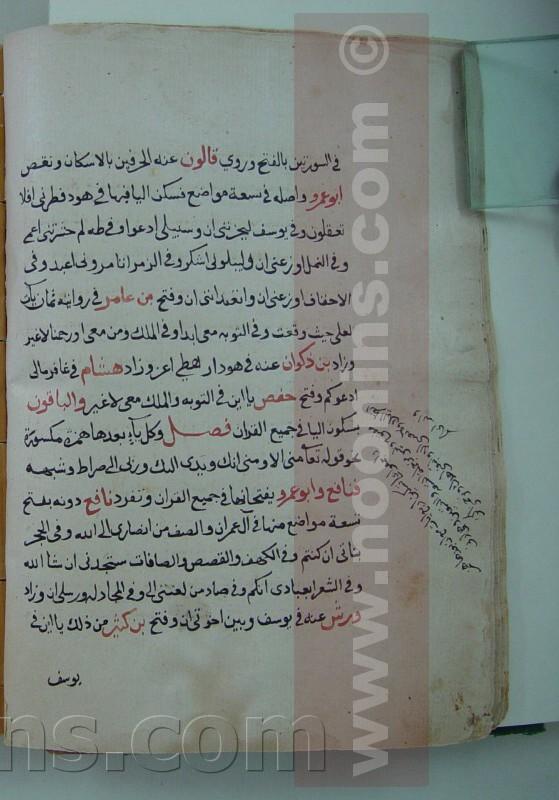 في السورتين بالفتح وروي قالون عنه الحرفين بالاسكان ونقض
ابو عمرو واصله في تسعة مواضع فسكن اليا فيها في هود فطرني افلا
تعقلون وفي يوسف ليحزنني ان وسبيلي ادعوا وفي طه لم حشرتني اعمي
وفي النمل اوزعني ان وليبلوني اشكر وفي الزمر تامروني اعبد وفي
الاحقاف اوزعني ان واتعدانني ان وفتح بن عامر في روايته ثمان يآت
لعلي حيث وقعت وفي التوبه معي ابدا وفي الملك ومن معي اورحمنا لاغير
وزاد بن ذكوان عنه في هود ارهطي اعز وزاد هشام في غافر مالي
ادعوكم وفتح حفص يا اين في التوبه والملك معي لاغير والباقون
بسكون اليا في جميع القران فصل وكل يآء بعدها همزة مكسورة
نحو قوله تعا مني الا ومني انك ويدي اليك وربي الي صراط وشبهه
فنافع وابو عمرو بفتحانها في جميع القران وتفرد نافع دونه بفتح
تسعة مواضع منها في آل عمران والصف من انصاري الي الله وفي الحجر
بناتي ان كنتم وفي الكهف والقصص والصافات ستجدني ان شا الله
وفي الشعرا بعبادي انكم وفي صاد من لعنتي الي وفي المجادله ورسلي ان وزاد
ورش عنه في يوسف وبين اخوتي ان وفتح بن كثير من ذلك يا اين في
يوسف
www.noornins.com ©
ns.com